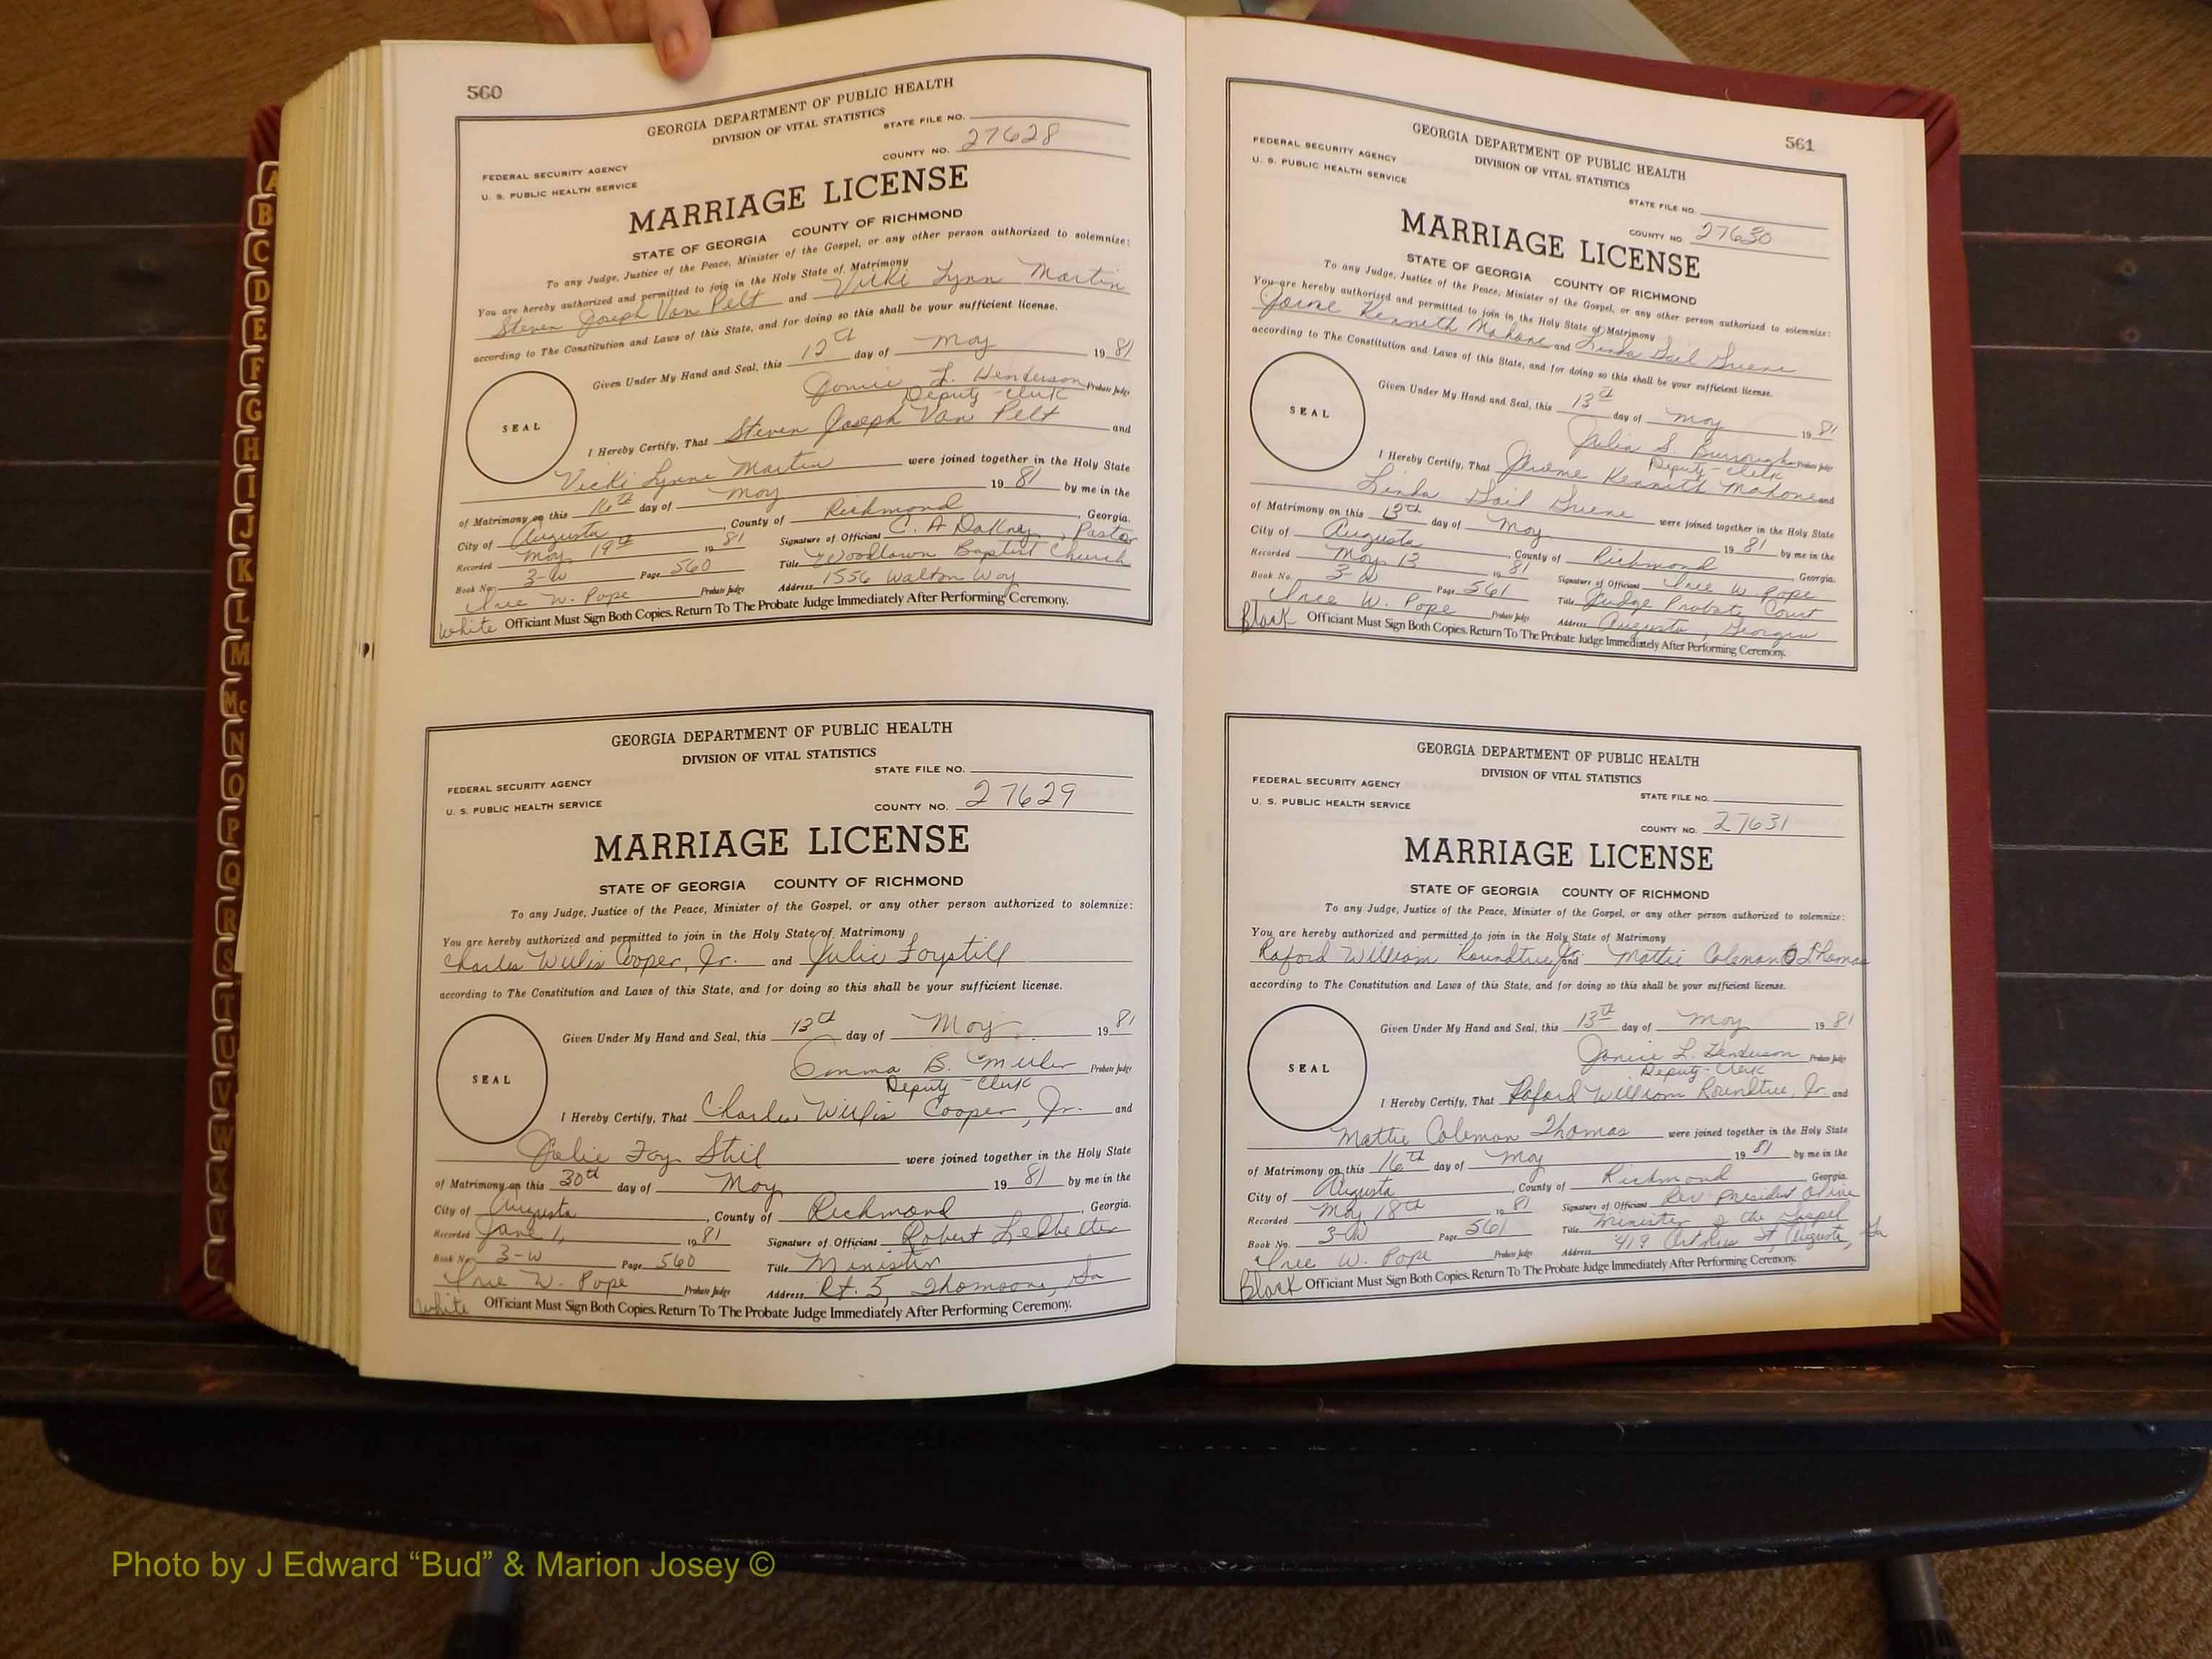 560
GEORGIA DEPARTMENT OF PUBLIC HEALTH
DIVISION OF VITAL STATISTICS
STATE FILE NO.
FEDERAL SECURITY AGENCY
U. S. PUBLIC HEALTH SERVICE
COUNTY NO. 27628
MARRIAGE LICENSE
STATE OF GEORGIA COUNTY OF RICHMOND
To any Judge, Justice of the Peace, Minister of the Gospel, or any other person authorized to solemnize:
You are hereby authorized and permitted to join in the Holy State of Matrimony
Steven Joseph Van Pelt and Vicki Lynn Martin
according to The Constitution and Laws of this State, and for doing so this shall be your sufficient license.
Given Under My Hand and Seal, this 12th day of May 1981
Janice L. Henderson Probate Judge
Deputy-Clerk
SEAL
I Hereby Certify, That Steven Joseph Van Pelt and
Vicki Lynne Martin were joined together in the Holy State
of Matrimony on this 16th day of May 1981 by me in the
City of Augusta, County of Richmond, Georgia.
Recorded May 19th 1981 Signature of Officiant C. A Dakney, Pastor
Book No. 3-W Page 560 Title Woodlawn Baptist Church
Iree W. Pope Probate Judge Address 1556 Walton Way
White Officiant Must Sign Both Copies. Return To The Probate Judge Immediately After Performing Ceremony.
GEORGIA DEPARTMENT OF PUBLIC HEALTH
DIVISION OF VITAL STATISTICS
STATE FILE NO.
FEDERAL SECURITY AGENCY
U. S. PUBLIC HEALTH SERVICE
COUNTY NO. 27629
MARRIAGE LICENSE
STATE OF GEORGIA COUNTY OF RICHMOND
To any Judge, Justice of the Peace, Minister of the Gospel, or any other person authorized to solemnize:
You are hereby authorized and permitted to join in the Holy State of Matrimony
Charles Willis Cooper, Jr. and Julie Foystill
according to The Constitution and Laws of this State, and for doing so this shall be your sufficient license.
Given Under My Hand and Seal, this 13th day of May 1981
Emma B. Miller Probate Judge
Deputy-Clerk
SEAL
I Hereby Certify, That Charles Willis Cooper, Jr. and
Julie Foy Stil were joined together in the Holy State
of Matrimony on this 30th day of May, 1981 by me in the
City of Augusta, County of Richmond, Georgia.
Recorded June 1, 1981 Signature of Officiant Robert Ledbetter
Book No. 3-W Page 560 Title Minister
Iree W. Pope Probate Judge Address Rt. 5, Thomson, Ga
White Officiant Must Sign Both Copies. Return To The Probate Judge Immediately After Performing Ceremony.
561
GEORGIA DEPARTMENT OF PUBLIC HEALTH
DIVISION OF VITAL STATISTICS
FEDERAL SECURITY AGENCY
U. S. PUBLIC HEALTH SERVICE
STATE FILE NO.
COUNTY NO. 27630
MARRIAGE LICENSE
STATE OF GEORGIA COUNTY OF RICHMOND
To any Judge, Justice of the Peace, Minister of the Gospel, or any other person authorized to solemnize:
You are hereby authorized and permitted to join in the Holy State of Matrimony
Kenneth Mahone and Linda Gail Greene
according to The Constitution and Laws of this State, and for doing so this shall be your sufficient license.
Given Under My Hand and Seal, this 13th day of May 1981
Julia S. Burroughs Probate Judge
Deputy-Clerk
SEAL
I Hereby Certify, That Jerome Kenneth Mahone and
Linda Gail Greene were joined together in the Holy State
of Matrimony on this 13th day of May 1981 by me in the
City of Augusta, County of Richmond, Georgia.
Recorded May 13 1981 Signature of Officiant Iree W. Pope
Book No. 3-W Page 561 Title Judge Probate Court
Iree W. Pope Probate Judge Address Augusta, Georgia
Black Officiant Must Sign Both Copies. Return To The Probate Judge Immediately After Performing Ceremony.
GEORGIA DEPARTMENT OF PUBLIC HEALTH
DIVISION OF VITAL STATISTICS
FEDERAL SECURITY AGENCY
U. S. PUBLIC HEALTH SERVICE
STATE FILE NO.
COUNTY NO. 27631
MARRIAGE LICENSE
STATE OF GEORGIA COUNTY OF RICHMOND
To any Judge, Justice of the Peace, Minister of the Gospel, or any other person authorized to solemnize:
You are hereby authorized and permitted to join in the Holy State of Matrimony
Raford William Roundtree, Jr. and Mattie Coleman Thomas
according to The Constitution and Laws of this State, and for doing so this shall be your sufficient license.
Given Under My Hand and Seal, this 13th day of May 1981
Janice L. Henderson Probate Judge
Deputy-Clerk
SEAL
I Hereby Certify, That Raford William Roundtree, Jr. and
Mattie Coleman Thomas were joined together in the Holy State
of Matrimony on this 16th day of May 1981 by me in the
City of Augusta, County of Richmond Georgia.
Recorded May 18th 1981 Signature of Officiant Rev President Olive
Book No. 3-W Page 561 Title Minister of the Gospel
Iree W. Pope Probate Judge Address 419 St, Augusta, Ga
Black Officiant Must Sign Both Copies. Return To The Probate Judge Immediately After Performing Ceremony.
A
B
C
D
E
F
G
H
I
J
K
L
M
Mc
N
O
P
Q
R
S
T
U
V
W
X
Y
Z
Photo by J Edward “Bud” & Marion Josey ©